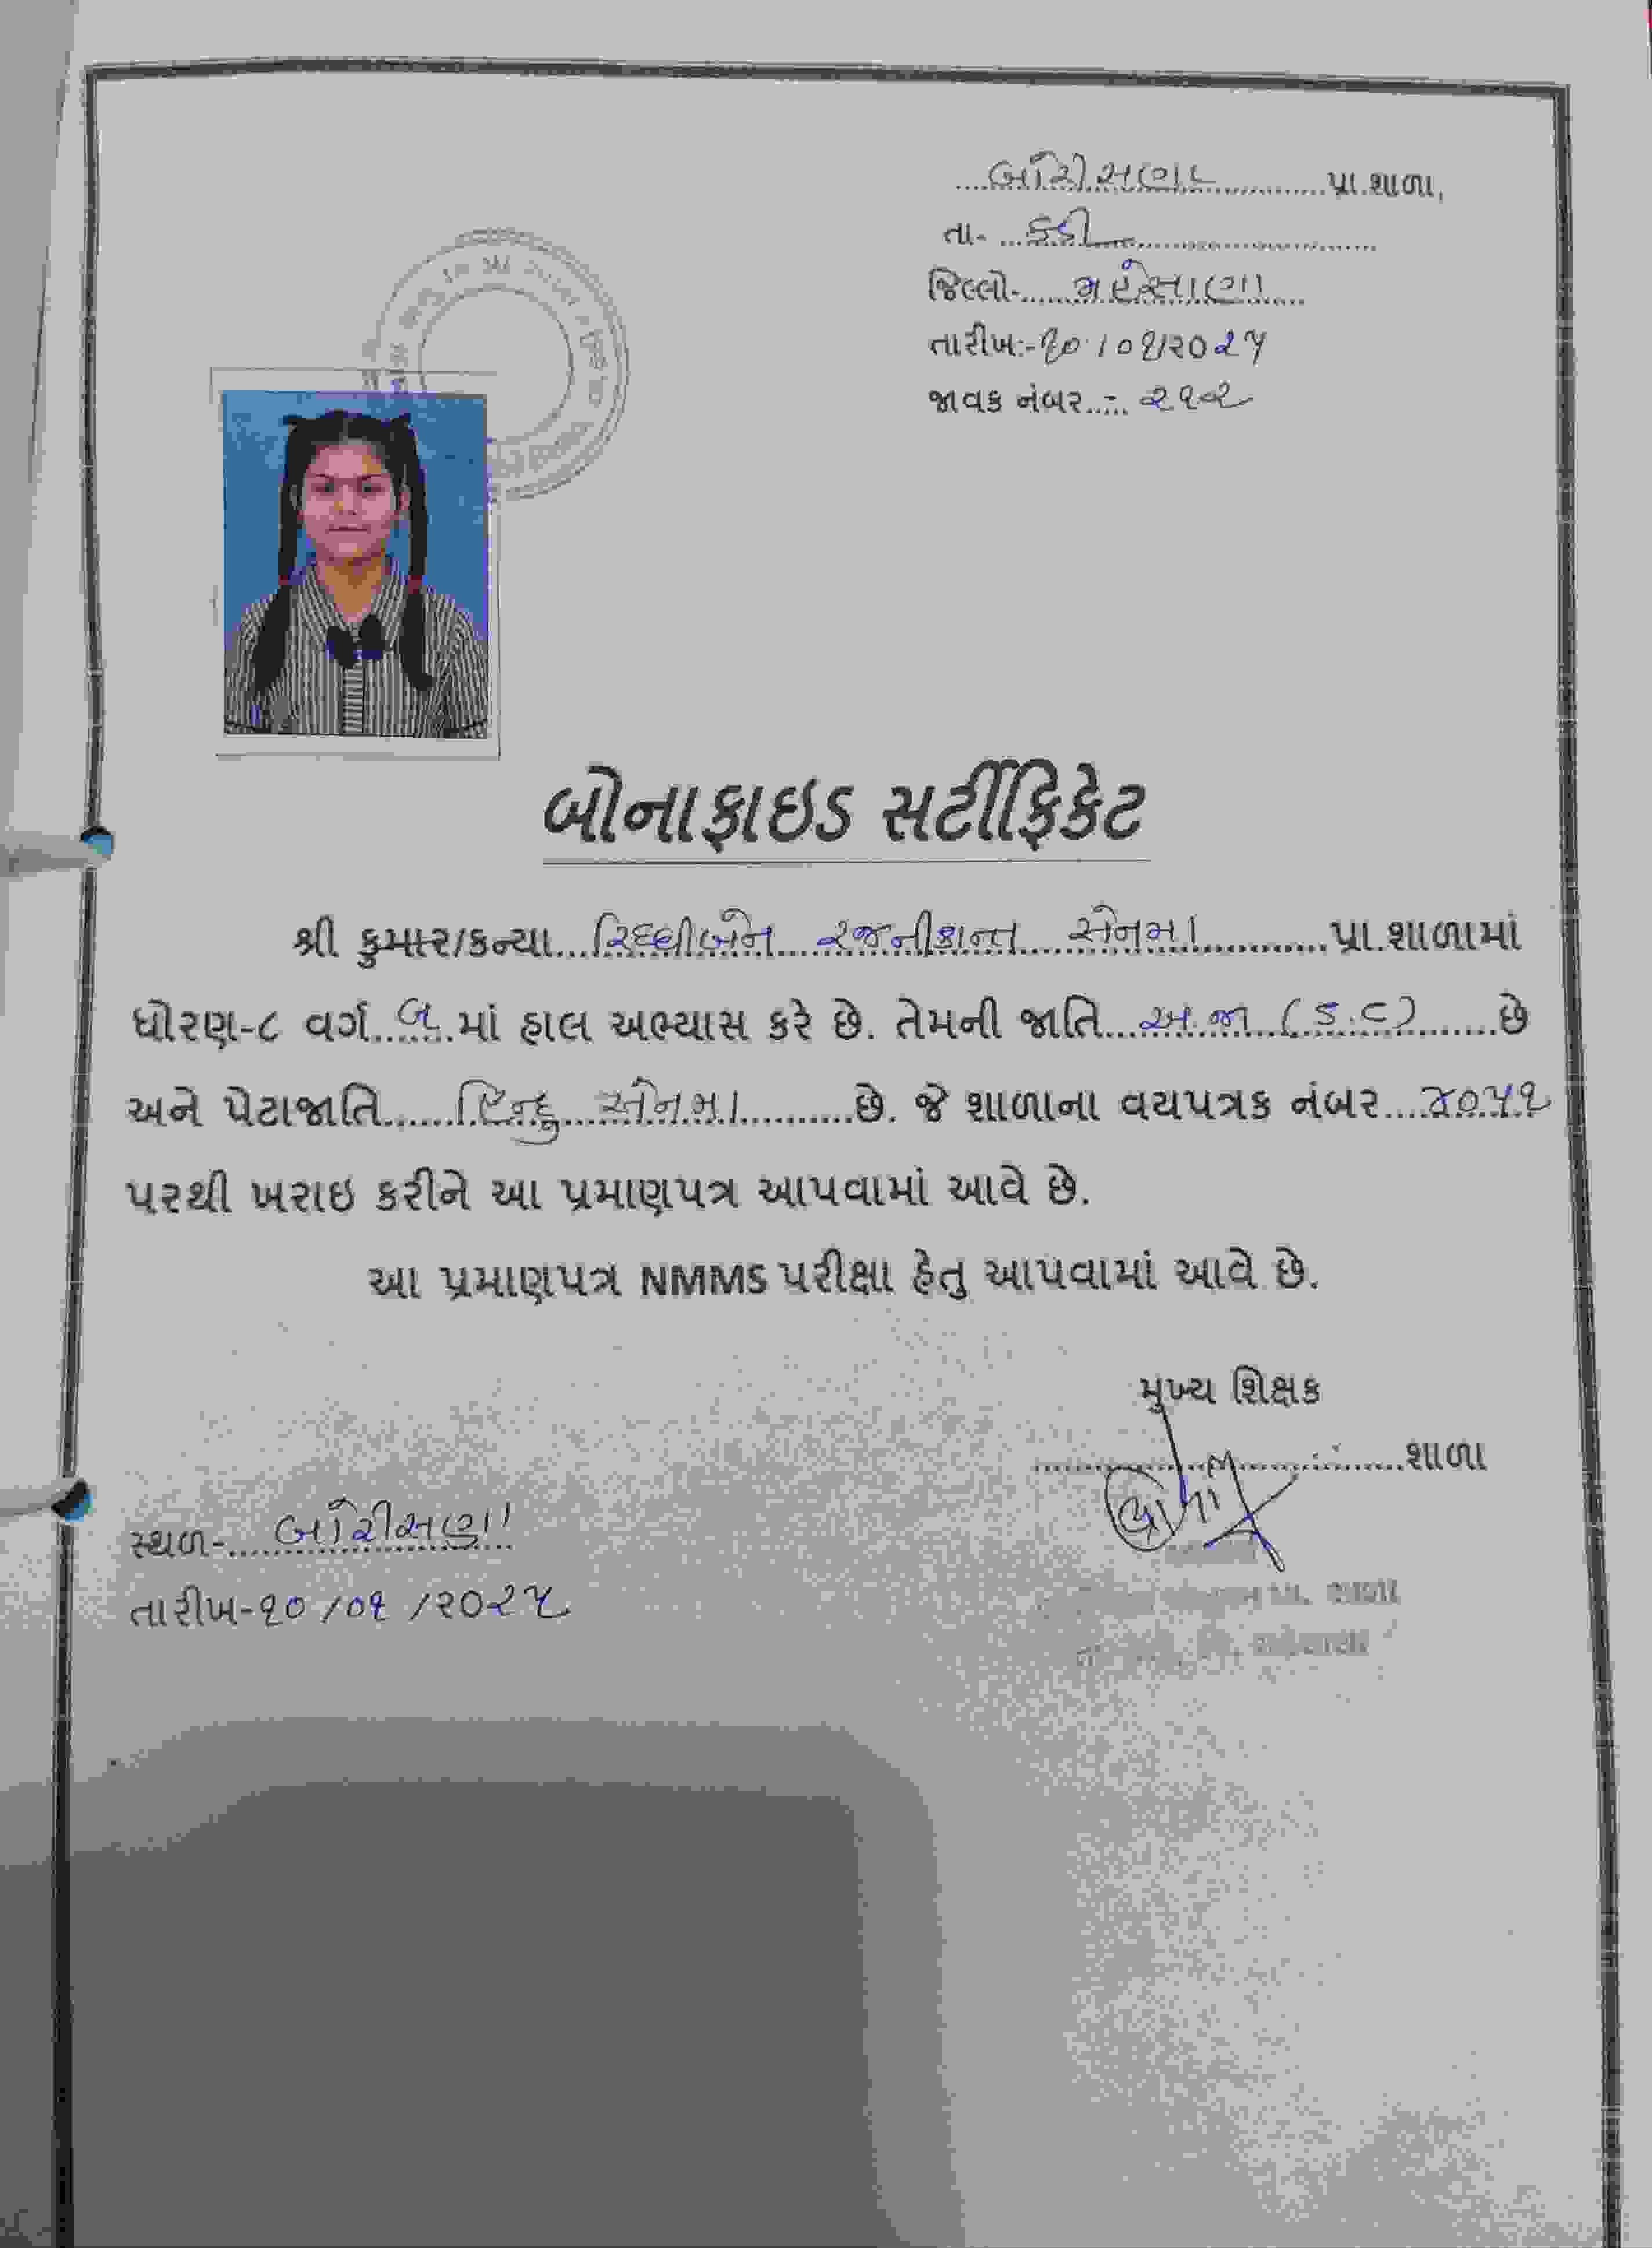 બોરીસણા પ્રા.શાળા,
તા- કડી
જિલ્લો- મહેસાણા
તારીખ:-૧૦/૦૧/૨૦૨૫
જાવક નંબર..:- ૨૧૨
બોનાફાઇડ સર્ટીફિકેટ
શ્રી કુમાર/કન્યા રિદ્ધીબેન રજનીકાન્ત સેનમા પ્રા.શાળામાં
ધોરણ-૮ વર્ગ બ માં હાલ અભ્યાસ કરે છે. તેમની જાતિ અ.જા (S.C) છે
અને પેટાજાતિ હિન્દુ સેનમા છે. જે શાળાના વયપત્રક નંબર ૪૦૫૧
પરથી ખરાઇ કરીને આ પ્રમાણપત્ર આપવામાં આવે છે.
આ પ્રમાણપત્ર NMMS પરીક્ષા હેતુ આપવામાં આવે છે.
મુખ્ય શિક્ષક
શાળા
સ્થળ- બોરીસણા
તારીખ-૧૦/૦૧/૨૦૨૫